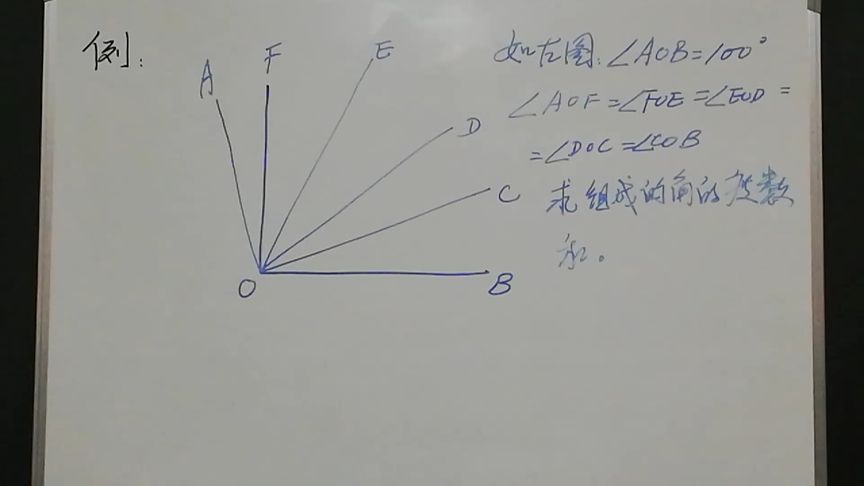 例:
A
F
E
D
C
B
O
如左图:∠AOB=100°
∠AOF=∠FOE=∠EOD=
=∠DOC=∠COB
求组成的角的度数
和。